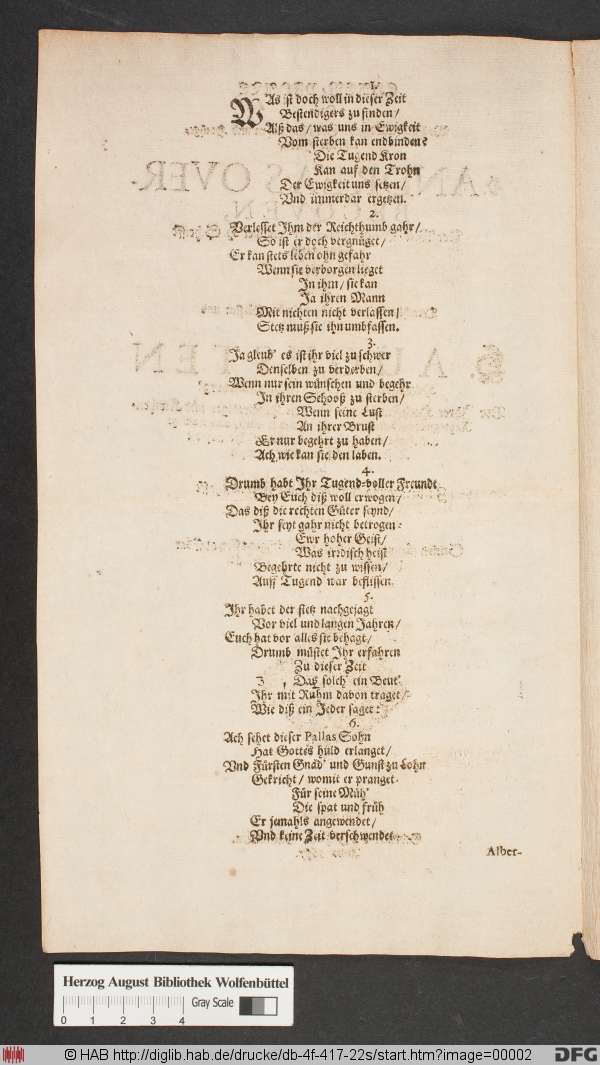 WAs ist doch woll in dieser Zeit
Bestendigers zu finden/
Alß das/ was uns in Ewigkeit
Vom sterben kan endbinden?
Die Tugend Kron
Kan auf den Trohn
Der Ewigkeit uns setzen/
Und immerdar ergetzen.
2.
Verlesset Ihm der Reichthumb gahr/
So ist er doch vergnüget/
Er kan stets leben ohn gefahr
Wenn sie verborgen lieget
In ihm/ sie kan
Ja ihren Mann
Mit nichten nicht verlassen/
Stetz muß sie ihn umbfassen.
3.
Ja gleub' es ist ihr viel zu schwer
Denselben zu verderben/
Wenn nur sein wünschen und begehr
In ihren Schooß zu sterben/
Wenn seine Lust
An ihrer Brust
Er nur begehrt zu haben/
Ach wie kan sie den laben.
4.
Drumb habt Ihr Tugend-voller Freundt
Bey Euch diß woll erwogen/
Das diß die rechten Güter seynd/
Ihr seyt gahr nicht betrogen:
Ewr hoher Geist/
Was irrdisch heist
Begehrte nicht zu wissen/
Auff Tugend war beflissen.
5.
Ihr habet der stetz nachgejagt
Vor viel und langen Jahren/
Euch hat vor alles sie behagt/
Drumb müstet Ihr erfahren
Zu dieser Zeit
Das solch' ein Beut'
Ihr mit Ruhm davon traget/
Wie diß ein Jeder saget:
6.
Ach sehet dieser Pallas Sohn
Hat Gottes huld erlanget/
Und Fürsten Gnad' und Gunst zu Lohn
Gekricht/ womit er pranget.
Für seine Müh'
Die spat und früh
Er jemahls angewendet/
Und keine Zeit verschwendet
Alber-
Herzog August Bibliothek Wolfenbüttel
Gray Scale
0 1 2 3 4
© HAB http://diglib.hab.de/drucke/db-4f-417-22s/start.htm?image=00002
DFG